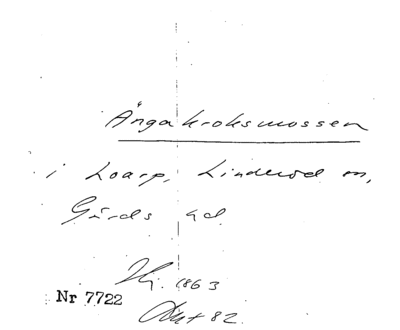 Ängakroksmossen
i Loarp, Linderöd sn,
Gärds hd
Hj. 1863
Nr 7722
Okt 82